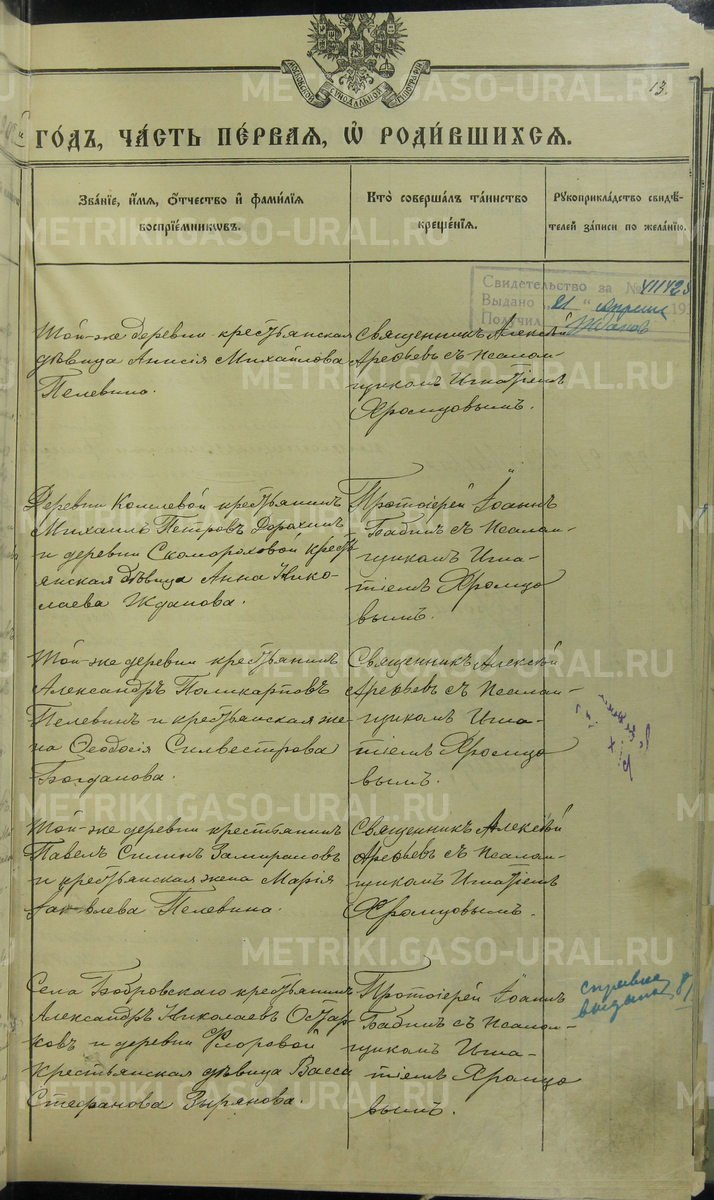 МОСКОВСКОЙ СѴНОДАЛЬНОЙ ТИПОГРАФІИ
13.
ГО́ДЪ, ЧА́СТЬ ПЕ́РВАЯ, Ѽ РОДИ́ВШИХСЯ.
Зва́нїе, и́мя, ѻ҆́тчество и҆ фами́лїя
воспрїе́мникѡвъ.
Кто̀ соверша́лъ та́инство
креще́нїя.
Рꙋкоприкла́дство свидѣ́-
телей за́писи по жела́нїю.
Свидетельство за №
Выдано „21“ апреля 19
Получил
Той-же деревни крестьянская
дѣвица Анисія Михайлова
Пелевина.
Священникъ Алексѣй
Арефьевъ съ псалом-
щикомъ Игнатіемъ
Хромцовымъ.
Деревни Комлевой крестьянинъ
Михаилъ Петровъ Дорохинъ
и деревни Скомороховой кресть-
янская дѣвица Анна Нико-
лаева Жданова.
Протоіерей Іоаннъ
Бабинъ съ псалом-
щикомъ Игна-
тіемъ Хромцо
вымъ.
Той-же деревни крестьянинъ
Александръ Поликарповъ
Пелевинъ и крестьянская же-
на Ѳеодосія Силвестрова
Богданова.
Священникъ Алексѣй
Арефьевъ съ псалом-
щикомъ Игна-
тіемъ Хромцо
вымъ.
Той-же деревни крестьянинъ
Павелъ Силинъ Замираловъ
и крестьянская жена Марія
Яковлева Пелевина.
Священникъ Алексѣй
Арефьевъ съ псалом-
щикомъ Игнатіемъ
Хромцовымъ.
Села Бобровскаго крестьянинъ
Александръ Николаевъ Остар-
ковъ и деревни Фроровой
крестьянская дѣвица Васса
Стефанова Зырянова.
Протоіерей Іоаннъ
Бабинъ съ псалом-
щикомъ Игна-
тіемъ Хромцо
вымъ.
справка
выдана
METRIKI.GASO-URAL.RU